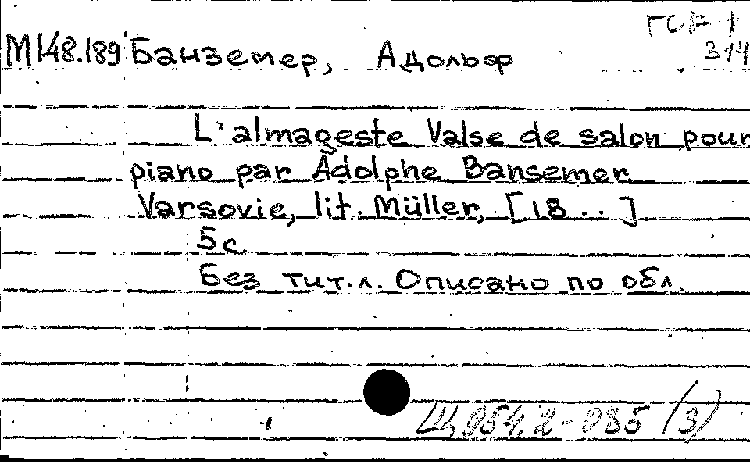 М148.189 Банземер, Адольф
314
L'almageste Valse de salon pour
piano par Adolphe Bansemer
Varsovie, lit. Müller, [18 . . ]
5 с
Без тит.л. Описано по обл.
Щ 954.2-985 (3)